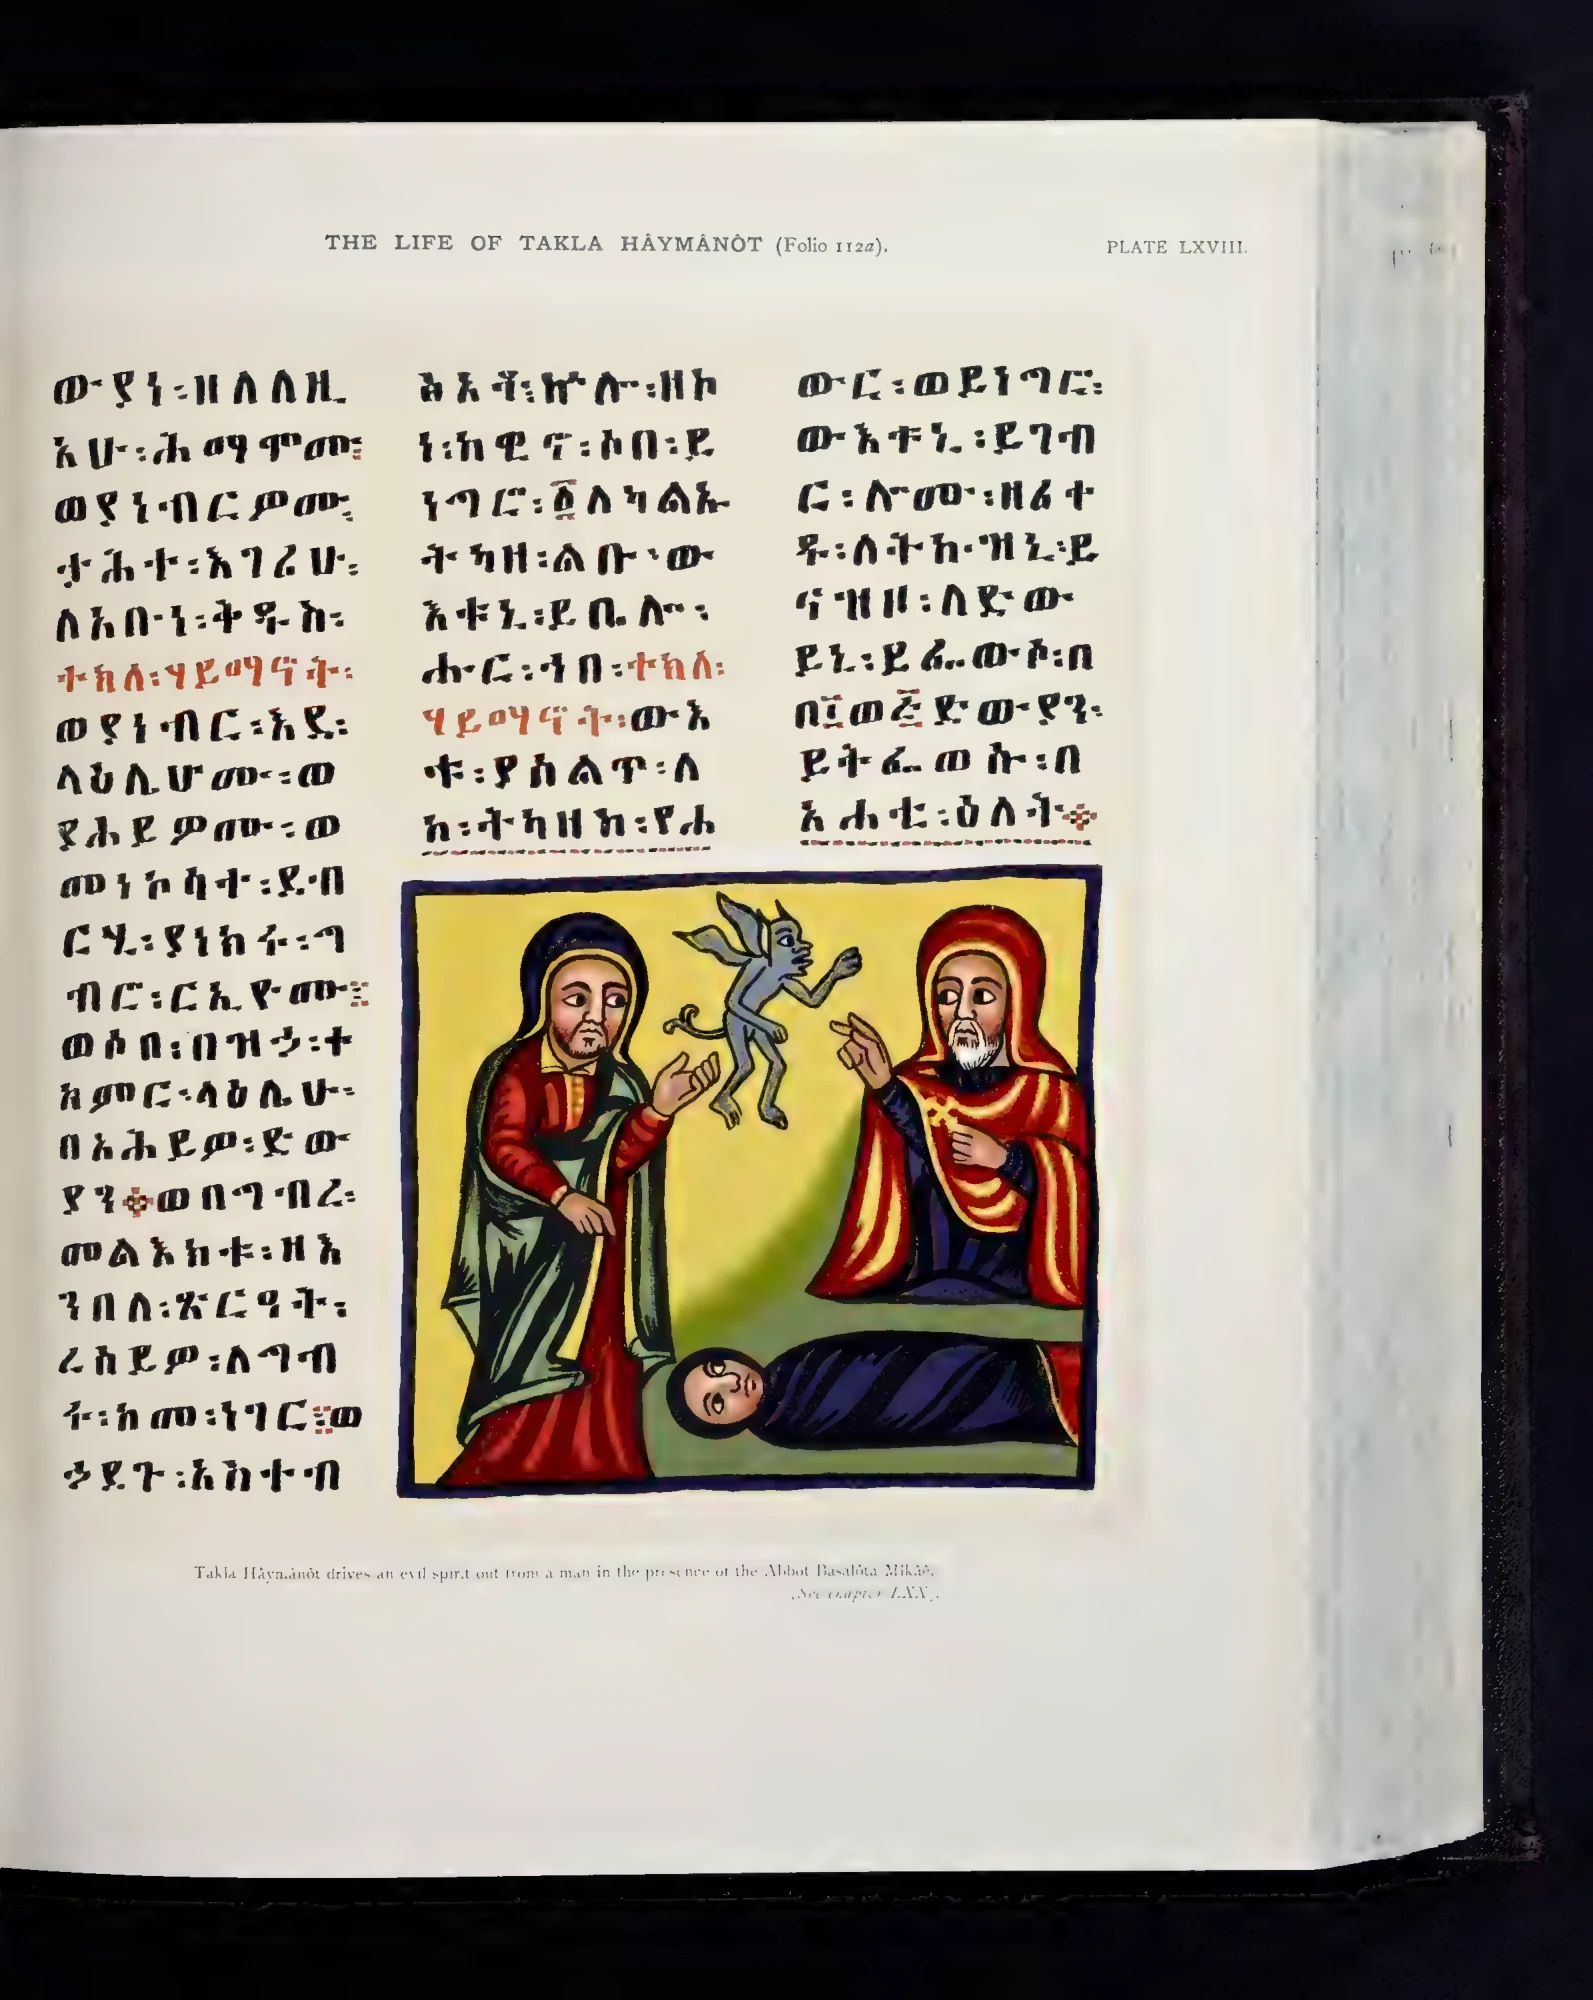 THE LIFE OF TAKLA HÂYMÂNÔT (Folio 112a).
PLATE LXVIII.
ውያነ፡ዘለለዚ
አሁ፡ሕማሞሙ፡
ወያነብርዎሙ፡
ታሕተ፡እገሪሁ፡
ለአቡነ፡ቅዱስ፡
ተክለ፡ሃይማኖት፡
ወያነብር፡እዴ፡
ላዕሌሆሙ፡ወ
ያሕይዎሙ፡ወ
መነኮሳተ፡ደብ
ርሂ፡ያነክሩ፡ግ
ብር፡ርኢዮሙ፡፡
ወሶበ፡በዝኃ፡ተ
አምር፡ላዕሌሁ፡
በአሕይዎ፡ድው
ያን፨ወበግብረ፡
መልእክቱ፡ዘእ
ንበለ፡ጽርዓት፡
ረሰይዎ፡ለግብ
ሩ፡ከመ፡ነገር፡፡ወ
ኃደጉ፡አስተብ
ሕእቶ፡ኵሉ፡ዘኮ
ነ፡ከዊኖ፡ሶበ፡ይ
ነግሮ፡፩ለካልኡ
ትካዘ፡ልቡ፡ው
እቱኒ፡ይቤሎ፡
ሑር፡ኀበ፡ተክለ፡
ሃይማኖት፡ውእ
ቱ፡ያሰልጥ፡ለ
ከ፡ትካዘከ፡የሐ
ውር፡ወይነግሮ፡
ውእቱኒ፡ይገብ
ር፡ሎሙ፡ዘፈተ
ዱ፡ለትኩዝኒ፡ይ
ናዝዞ፡ለድው
ይኒ፡ይፌውሶ፡በ
በ፲ወ፭ድውያን፡
ይትፌወሱ፡በ
አሐቲ፡ዕለት፨
Takla Hâymânôt drives an evil spirit out from a man in the presence of the Abbot Basalôta Mîkâêl.
(See chapter LXX).